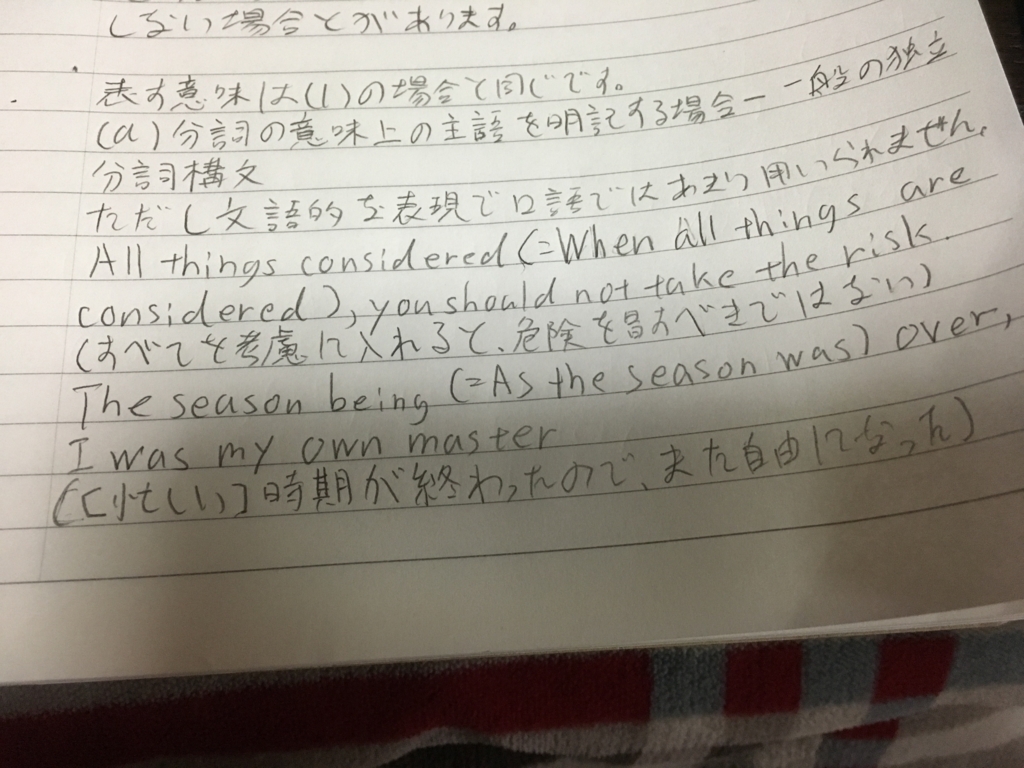 しない場合とがあります。
表す意味は(1)の場合と同じです。
(a)分詞の意味上の主語を明記する場合ー一般の独立
分詞構文
ただし文語的な表現で口語ではあまり用いられません。
All things considered(=When all things are
considered), you should not take the risk.
(すべてを考慮に入れると、危険を冒すべきではない)
The season being (=As the season was) over,
I was my own master
([忙しい]時期が終わったので、また自由になった)